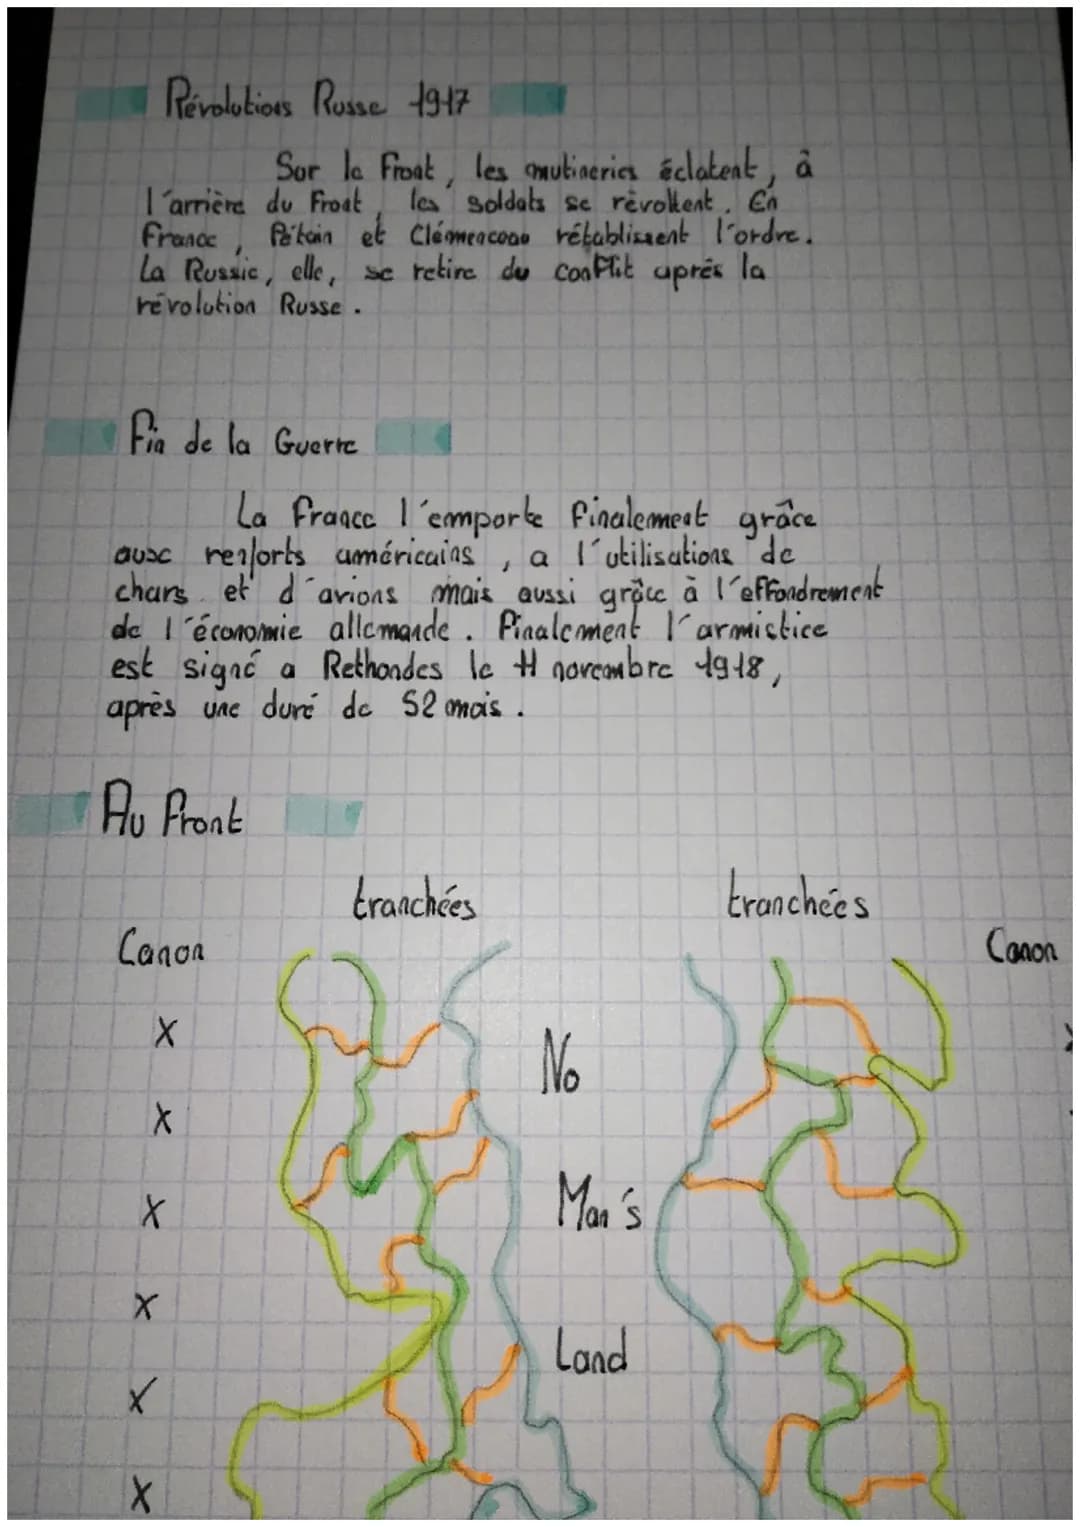 Révolutions Russe 1917
Sur le Front, les mutineries éclatent, à
l'arrière du Front, les soldats se révoltent. En
France, Pétain et Clémenceau rétablissent l'ordre.
La Russie, elle, se retire du conflit après la
révolution Russe.
Fin de la Guerre
La France l'emporte finalement grâce
aux renforts américains, a l'utilisations de
chars et d'avions mais aussi grâce à l'effondrement
de l'économie allemande. Finalement l'armistice
est signé a Rethondes le 11 novembre 1918,
après une duré de 52 mois.
Au Front
tranchées tranchées
Canon Canon
X
No
X
Man's
X
X
Land
X
X